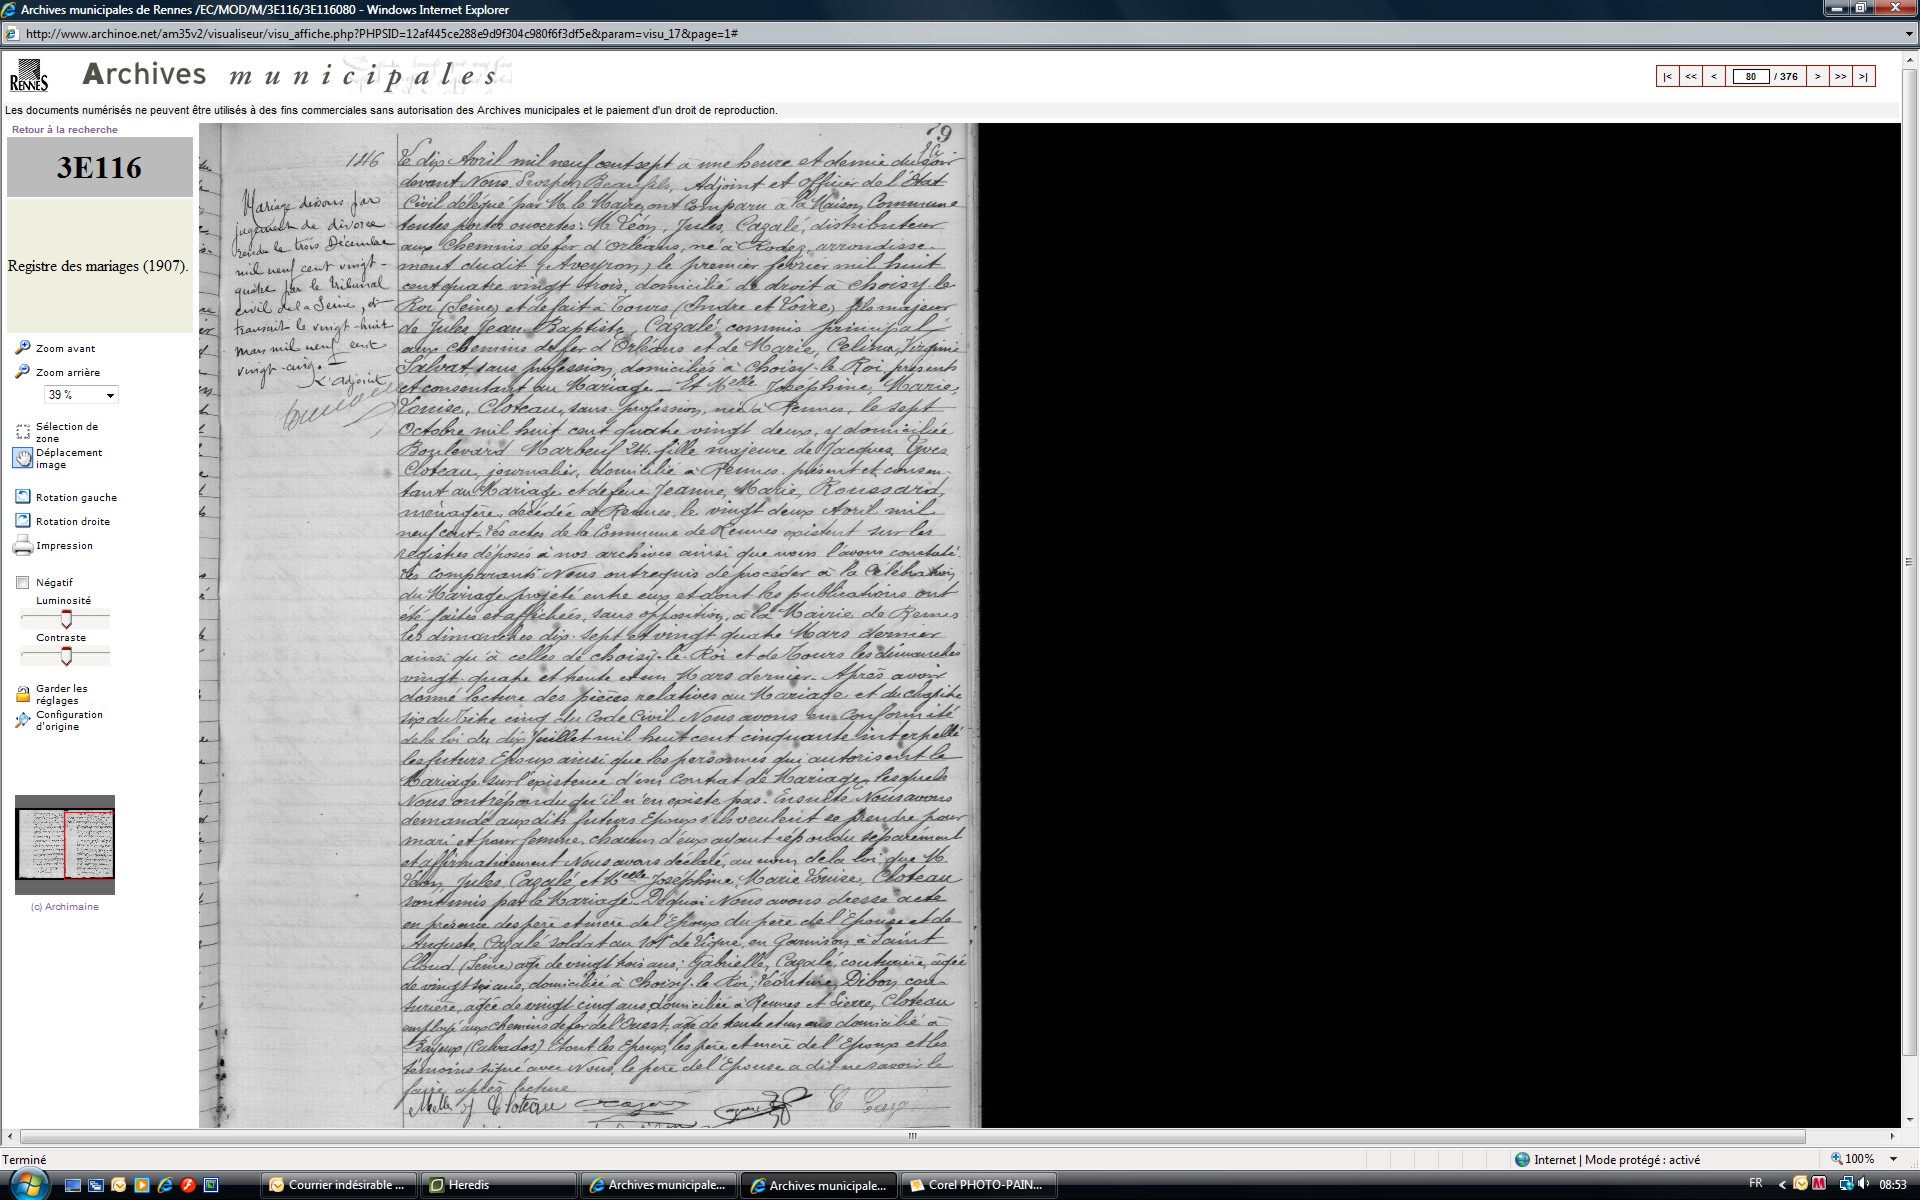 Archives municipales de Rennes /EC/MOD/M/3E116/3E116080 - Windows Internet Explorer
http://www.archinoe.net/am35v2/visualiseur/visu_affiche.php?PHPSID=12af445ce288e9d9f304c980f6f3df5e&param=visu_17&page=1#
RENNES
Archives municipales
|< << < 80 / 376 > >> >|
Les documents numérisés ne peuvent être utilisés à des fins commerciales sans autorisation des Archives municipales et le paiement d'un droit de reproduction.
Retour à la recherche
3E116
Registre des mariages (1907).
Zoom avant
Zoom arrière
39 %
Sélection de
zone
Déplacement
image
Rotation gauche
Rotation droite
Impression
Négatif
Luminosité
Contraste
Garder les
réglages
Configuration
d'origine
(c) Archimaine
79
146
Mariage dissous par
jugement de divorce
rendu le trois Décembre
mil neuf cent vingt-
quatre par le tribunal
civil de la Seine, et
transcrit le vingt-huit
mars mil neuf cent
vingt-cinq.
L'adjoint,
Le dix Avril mil neuf cent sept à une heure et demie du soir
devant Nous Prosper Beaufils, Adjoint et Officier de l'Etat
Civil délégué par M. le Maire, ont comparu à la Maison Commune
toutes portes ouvertes: M. Léon, Jules, Cazalé, distributeur
aux Chemins de fer d'Orléans, né à Rodez, arrondisse-
ment dudit (Aveyron) le premier février mil huit
cent quatre vingt trois, domicilié de droit à Choisy-le
Roi (Seine) et de fait à Tours (Indre et Loire) fils majeur
de Jules Jean Baptiste, Cazalé, commis principal
aux chemins de fer d'Orléans et de Marie, Celina, Virginie
Salvat, sans profession, domiciliés à Choisy-le-Roi, présents
et consentant au Mariage - Et Melle Joséphine, Marie,
Louise, Cloteau, sans profession, née à Rennes, le sept
Octobre mil huit cent quatre vingt deux, y domiciliée
Boulevard Marbeuf 24. fille majeure de Jacques, Yves
Cloteau, journalier, domicilié à Rennes. présent et consen-
tant au Mariage et de feue Jeanne, Marie, Roussard,
ménagère, décédée à Rennes, le vingt deux Avril mil
neuf cent. Les actes de la Commune de Rennes existent sur les
registres déposés à nos archives ainsi que nous l'avons constaté.
Les comparants Nous ont requis de procéder à la Célébration
du Mariage projeté entre eux et dont les publications ont
été faites et affichées, sans opposition, à la Mairie de Rennes
les dimanches dix-sept et vingt quatre Mars dernier
ainsi qu'à celles de Choisy-le-Roi et de Tours les dimanches
vingt-quatre et trente et un Mars dernier. Après avoir
donné lecture des pièces relatives au Mariage et du chapitre
six du Titre cinq du Code Civil Nous avons en conformité
de la loi du dix Juillet mil huit cent cinquante interpellé
les futurs Epoux ainsi que les personnes qui autorisent le
Mariage sur l'existence d'un Contrat de Mariage, lesquels
Nous ont répondu qu'il n'en existe pas. Ensuite Nous avons
demandé aux dits futurs Epoux s'ils veulent se prendre pour
mari et pour femme, chacun d'eux ayant répondu séparément
et affirmativement Nous avons déclaré, au nom de la loi, que M.
Léon, Jules, Cazalé et Melle Joséphine, Marie Louise, Cloteau
sont unis par le Mariage. De quoi Nous avons dressé acte
en présence des père et mère de l'Epoux du père de l'Epouse et de
Auguste, Cazalé soldat au 101e de Ligne, en Garnison à Saint
Cloud (Seine) âgé de vingt trois ans; Gabrielle, Cazalé, couturière, âgée
de vingt ans, domiciliée à Choisy-le-Roi; Léontine, Dibon, cou-
turière, âgée de vingt cinq ans, domiciliée à Rennes et Pierre, Cloteau
employé aux chemins de fer de l'Ouest, âgé de trente et un ans domicilié à
Bayeux (Calvados) Et ont les Epoux, les père et mère de l'Epoux et les
témoins signé avec Nous, le père de l'Epouse a dit ne savoir le
faire après lecture
Melle J Cloteau
Terminé
Internet | Mode protégé : activé
100%
Courrier indésirable ...
Heredis
Archives municipale...
Archives municipale...
Corel PHOTO-PAIN...
FR
08:53